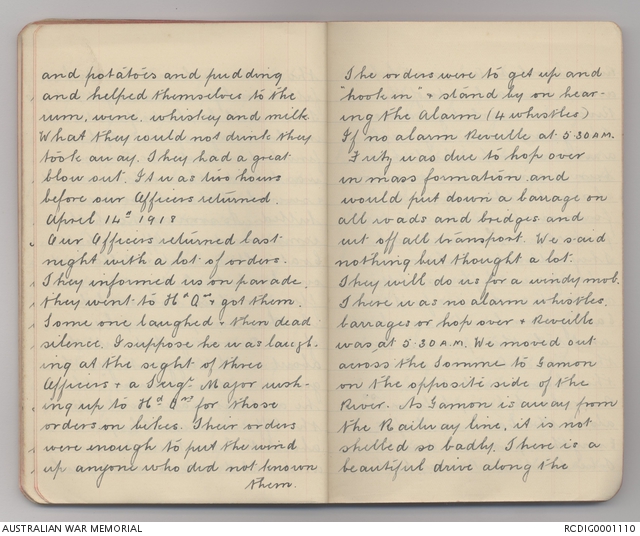 and potatoes and pudding
and helped themselves to the
rum, wine, whiskey and milk.
What they could not drink they
took away. They had a great
blow out. It was two hours
before our Officers returned.
April 14th 1918
Our Officers returned last
night with a lot of orders.
They informed us on parade
they went to Hd Qrs & got them.
Some one laughed & then dead
silence. I suppose he was laugh-
ing at the sight of three
Officers & a Sergt Major rush-
ing up to Hd Qrs for those
orders on bikes. Their orders
were enough to put the wind
up anyone who did not known
them.
The orders were to get up and
"hook in" & stand by on hear-
ing the Alarm (4 whistles)
If no alarm Reveille at 5.30 A.M.
Fritz was due to hop over
in mass formation and
would put down a barrage on
all roads and bridges and
cut off all transport. We said
nothing but thought a lot.
They will do us for a windy mob.
There was no alarm whistles,
barrages or hop over & Reveille
was at 5.30 A.M. We moved out
across the Somme to Gamon
on the opposite side of the
River. As Gamon is away from
the Railway line, it is not
shelled so badly. There is a
beautiful drive along the
AUSTRALIAN WAR MEMORIAL
RCDIG0001110